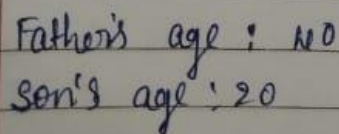 Father's age : 40
Son's age : 20